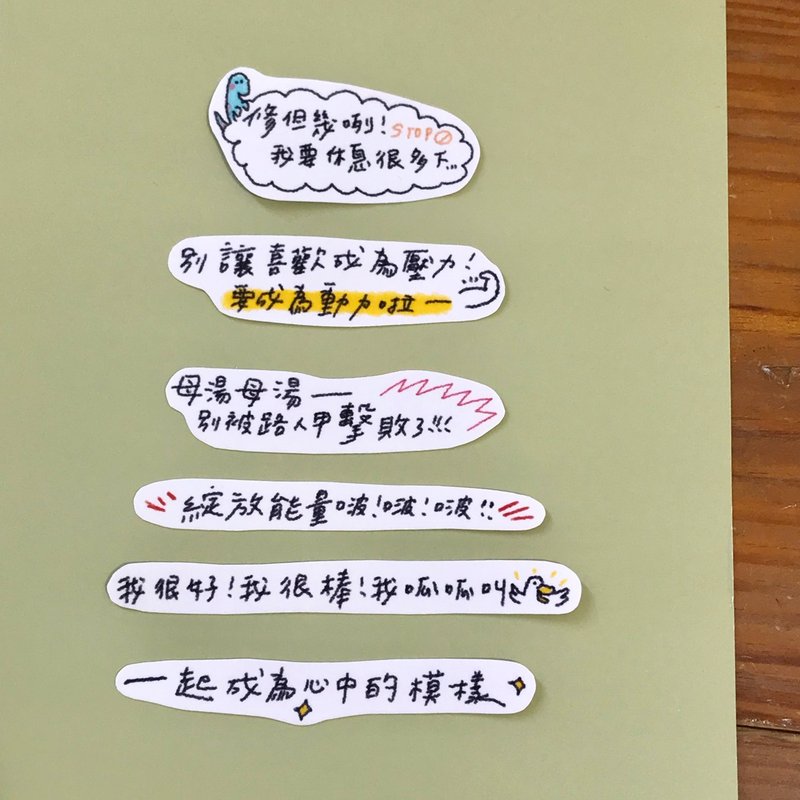 修但幾咧! STOP
我要休息很多下...
別讓喜歡成為壓力!
要成為動力啦一
母湯母湯——
別被路人甲擊敗了!!!
綻放能量啵!啵!啵!!
我很好!我很棒!我呱呱叫
一起成為心中的模樣